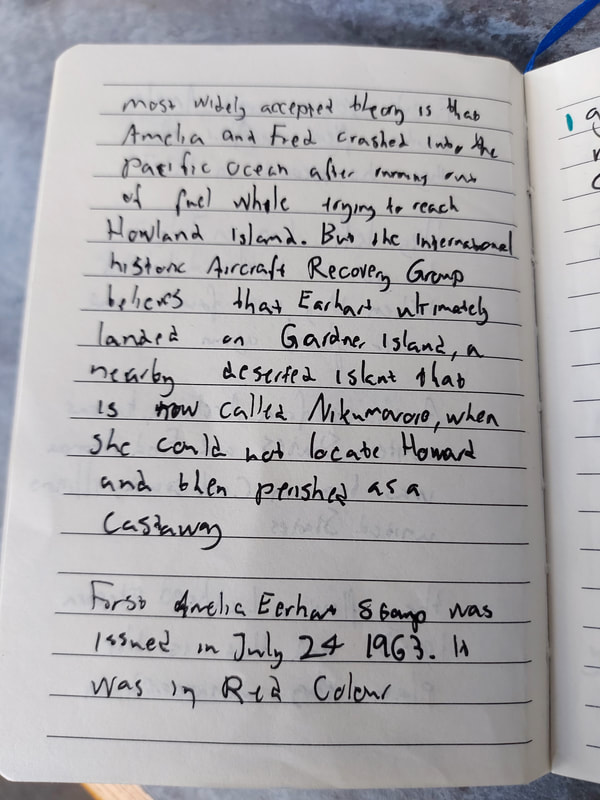 most widely accepted theory is that
Amelia and Fred crashed into the
pacific ocean after running out
of fuel while trying to reach
Howland Island. But the International
historic Aircraft Recovery Group
believes that Earhart ultimately
landed on Gardner Island, a
nearby deserted islant that
is now called Nikumaroro, when
she could not locate Howard
and then perished as a
Castaway
First Amelia Eerhart Stamp was
issued in July 24 1963. It
was in Red Colour